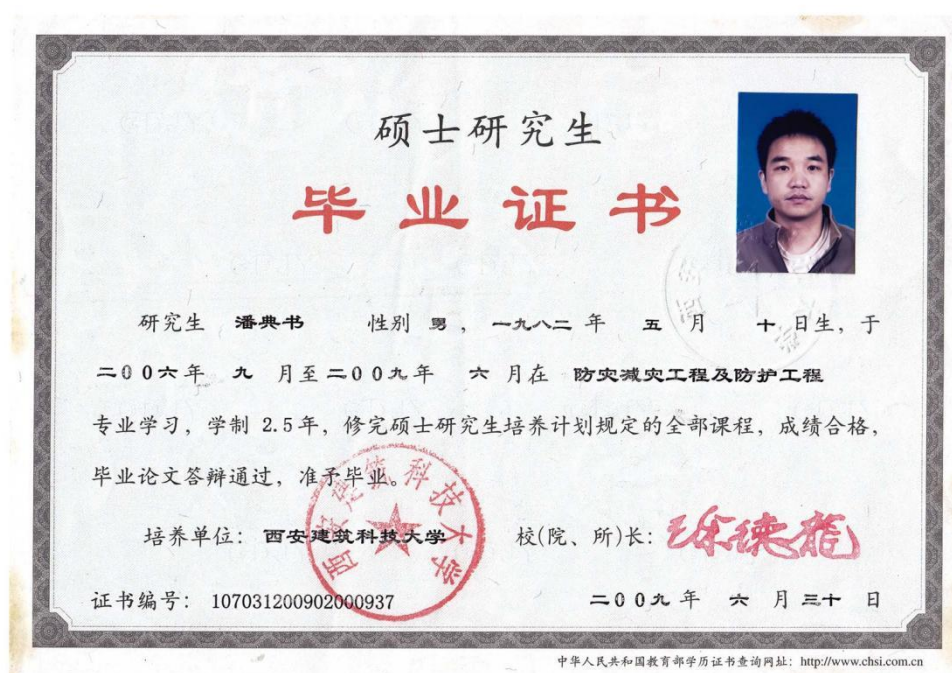 硕士研究生
毕业证书
研究生 潘典书 性别 男，一九八二 年 五 月 十 日生，于
二00六年 九 月至二00九年 六 月在 防灾减灾工程及防护工程
专业学习，学制 2.5年，修完硕士研究生培养计划规定的全部课程，成绩合格，
毕业论文答辩通过，准予毕业。
培养单位：西安建筑科技大学 校(院、所)长：徐德龙
西安建筑科技大学
证书编号：107031200902000937 二00九 年 六 月 三十 日
中华人民共和国教育部学历证书查询网址：http://www.chsi.com.cn